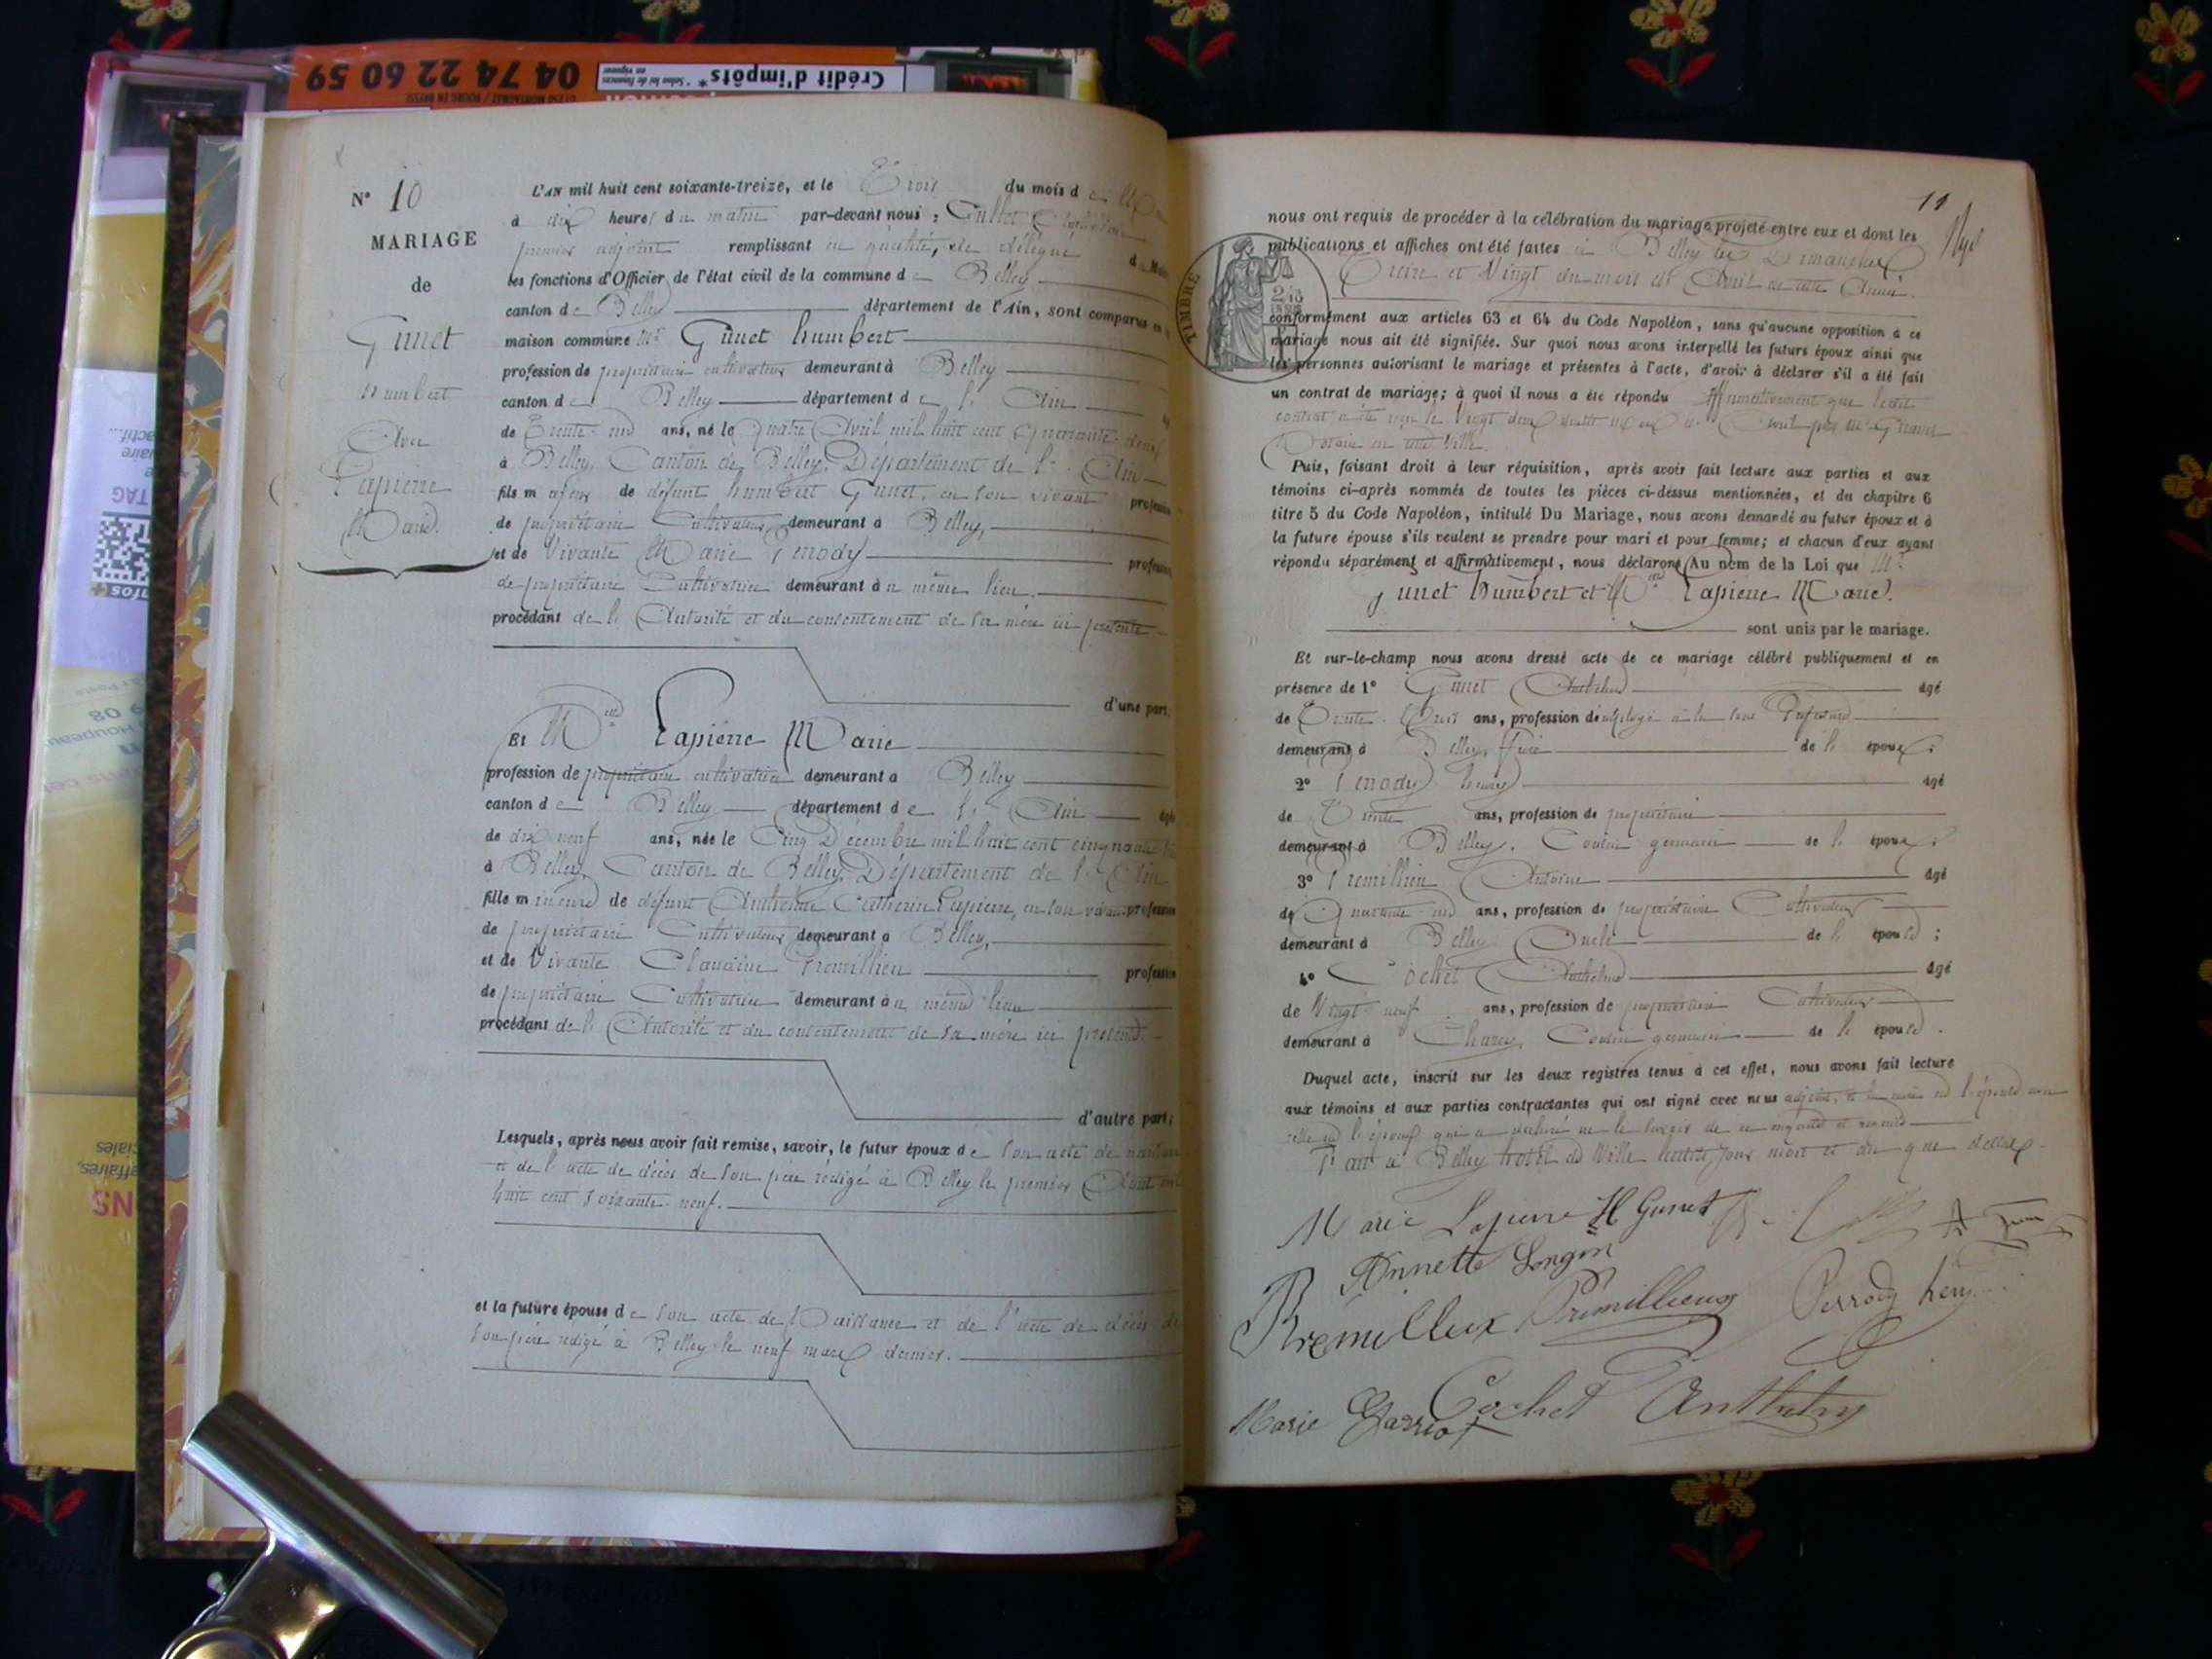 04 74 22 60 59
Crédit d'impôts*
01250 MONTAGNAT / BOURG EN BRESSE
N° 10
MARIAGE
de
Gunet
Humbert
Avec
Lapierre
Marie.
L'AN mil huit cent soixante-treize, et le Trois du mois de
à dix heures du matin par-devant nous,
premier adjoint remplissant en qualité de délégué du Maire
les fonctions d'Officier de l'état civil de la commune de Belley
canton de Belley département de l'Ain, sont comparus en la
maison commune Mr Gunet humbert
profession de propriétaire cultivateur demeurant à Belley
canton de Belley département de l'Ain
de Trente-un ans, né le quatre Avril mil huit cent quarante-deux
à Belley, Canton de Belley, Département de l'Ain
fils majeur de défunt humbert Gunet, en son vivant profession
de propriétaire Cultivateur demeurant à Belley,
et de Vivante Marie Perrody profession
de propriétaire Cultivatrice demeurant au même lieu.
procédant de l'Autorité et du consentement de sa mère ici présente.
d'une part;
Et Melle Lapierre Marie
profession de propriétaire cultivatrice demeurant à Belley
canton de Belley département de l'Ain âgée
de dix neuf ans, née le Cinq Décembre mil huit cent cinquante
à Belley, Canton de Belley, Département de l'Ain
fille mineure de défunt Anthelme Catherin Lapierre, en son vivant profession
de propriétaire Cultivateur demeurant à Belley,
et de Vivante Claudine Premillieu profession
de propriétaire Cultivatrice demeurant au même lieu
procédant de l'Autorité et du consentement de sa mère ici présente.
d'autre part;
Lesquels, après nous avoir fait remise, savoir, le futur époux de son acte de naissance
et de l'acte de décès de son père rédigé à Belley le premier Août mil
huit cent soixante-neuf.
et la future épouse de son acte de Naissance et de l'acte de décès de
son père rédigé à Belley le neuf mars dernier.
11
nous ont requis de procéder à la célébration du mariage projeté entre eux et dont les
publications et affiches ont été faites à Belley les Dimanches
Treize et Vingt du mois de Avril de cette Année.
TIMBRE
conformément aux articles 63 et 64 du Code Napoléon, sans qu'aucune opposition à ce
mariage nous ait été signifiée. Sur quoi nous avons interpellé les futurs époux ainsi que
les personnes autorisant le mariage et présentes à l'acte, d'avoir à déclarer s'il a été fait
un contrat de mariage; à quoi il nous a été répondu affirmativement que ledit
contrat a été reçu le Vingt deux Avril par Me
Notaire en cette Ville.
Puis, faisant droit à leur réquisition, après avoir fait lecture aux parties et aux
témoins ci-après nommés de toutes les pièces ci-dessus mentionnées, et du chapitre 6
titre 5 du Code Napoléon, intitulé Du Mariage, nous avons demandé au futur époux et à
la future épouse s'ils veulent se prendre pour mari et pour femme; et chacun d'eux ayant
répondu séparément et affirmativement, nous déclarons Au nom de la Loi que Mr
Gunet humbert et Melle Lapierre Marie.
sont unis par le mariage.
Et sur-le-champ nous avons dressé acte de ce mariage célébré publiquement et en
présence de 1° Gunet Anthelme âgé
de Trente-Trois ans, profession d'employé à la Sous Préfecture
demeurant à Belley, frère de l'époux;
2° Perrody henry âgé
de Trente ans, profession de propriétaire
demeurant à Belley, Cousin germain de l'époux;
3° Premillieu Antoine âgé
de Quarante-un ans, profession de propriétaire Cultivateur
demeurant à Belley, Oncle de l'épouse;
4° Cochet Anthelme âgé
de Vingt-neuf ans, profession de propriétaire Cultivateur
demeurant à Cousin germain de l'épouse.
Duquel acte, inscrit sur les deux registres tenus à cet effet, nous avons fait lecture
aux témoins et aux parties contractantes qui ont signé avec nous adjoint, et la mère de l'épouse non
celle de l'époux qui a déclaré ne le savoir de ce enquise
Fait à Belley hôtel de Ville lesdits jour mois et an que dessus.
Marie Lapierre H Gunet
Annette Longin
Premilleux Prémillieux Perrody henry
Marie Garriot Cochet Anthelme